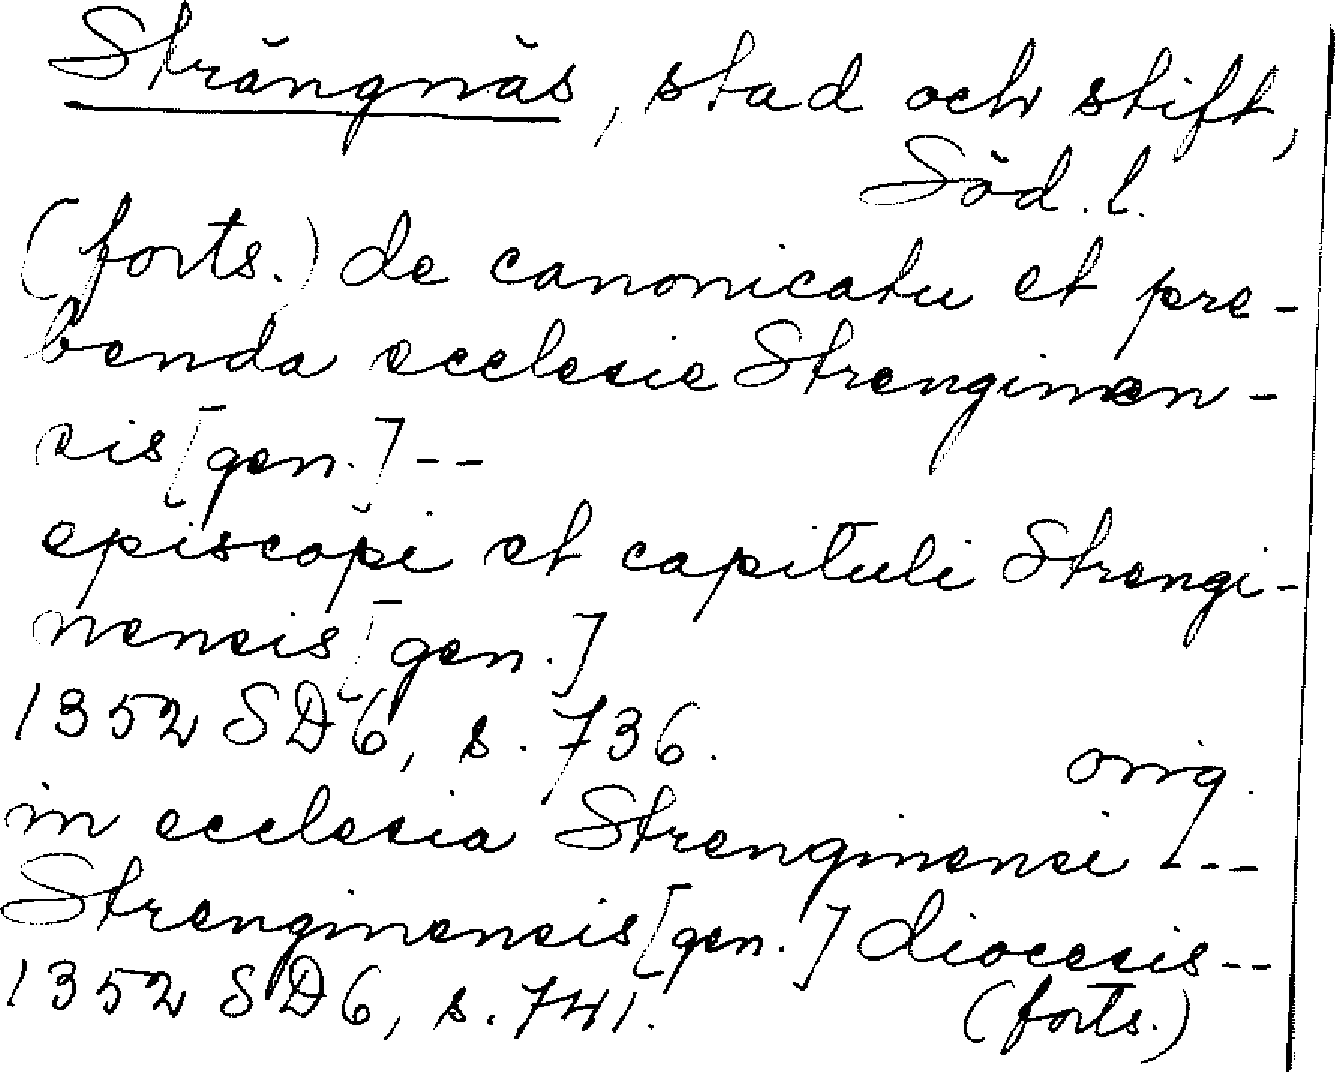 Strängnäs, stad och stift,
Söd. l.
(forts.) de canonicatu et pre-
benda ecclesie Strenginen-
sis [gen.] --
episcopi et capituli Strengi-
nensis [gen.]
1352 SD6, s. 736.
orig.
in ecclesia Strenginensi ---
Strenginensis [gen.] diocesis --
1352 SD6, s. 741.
(forts.)